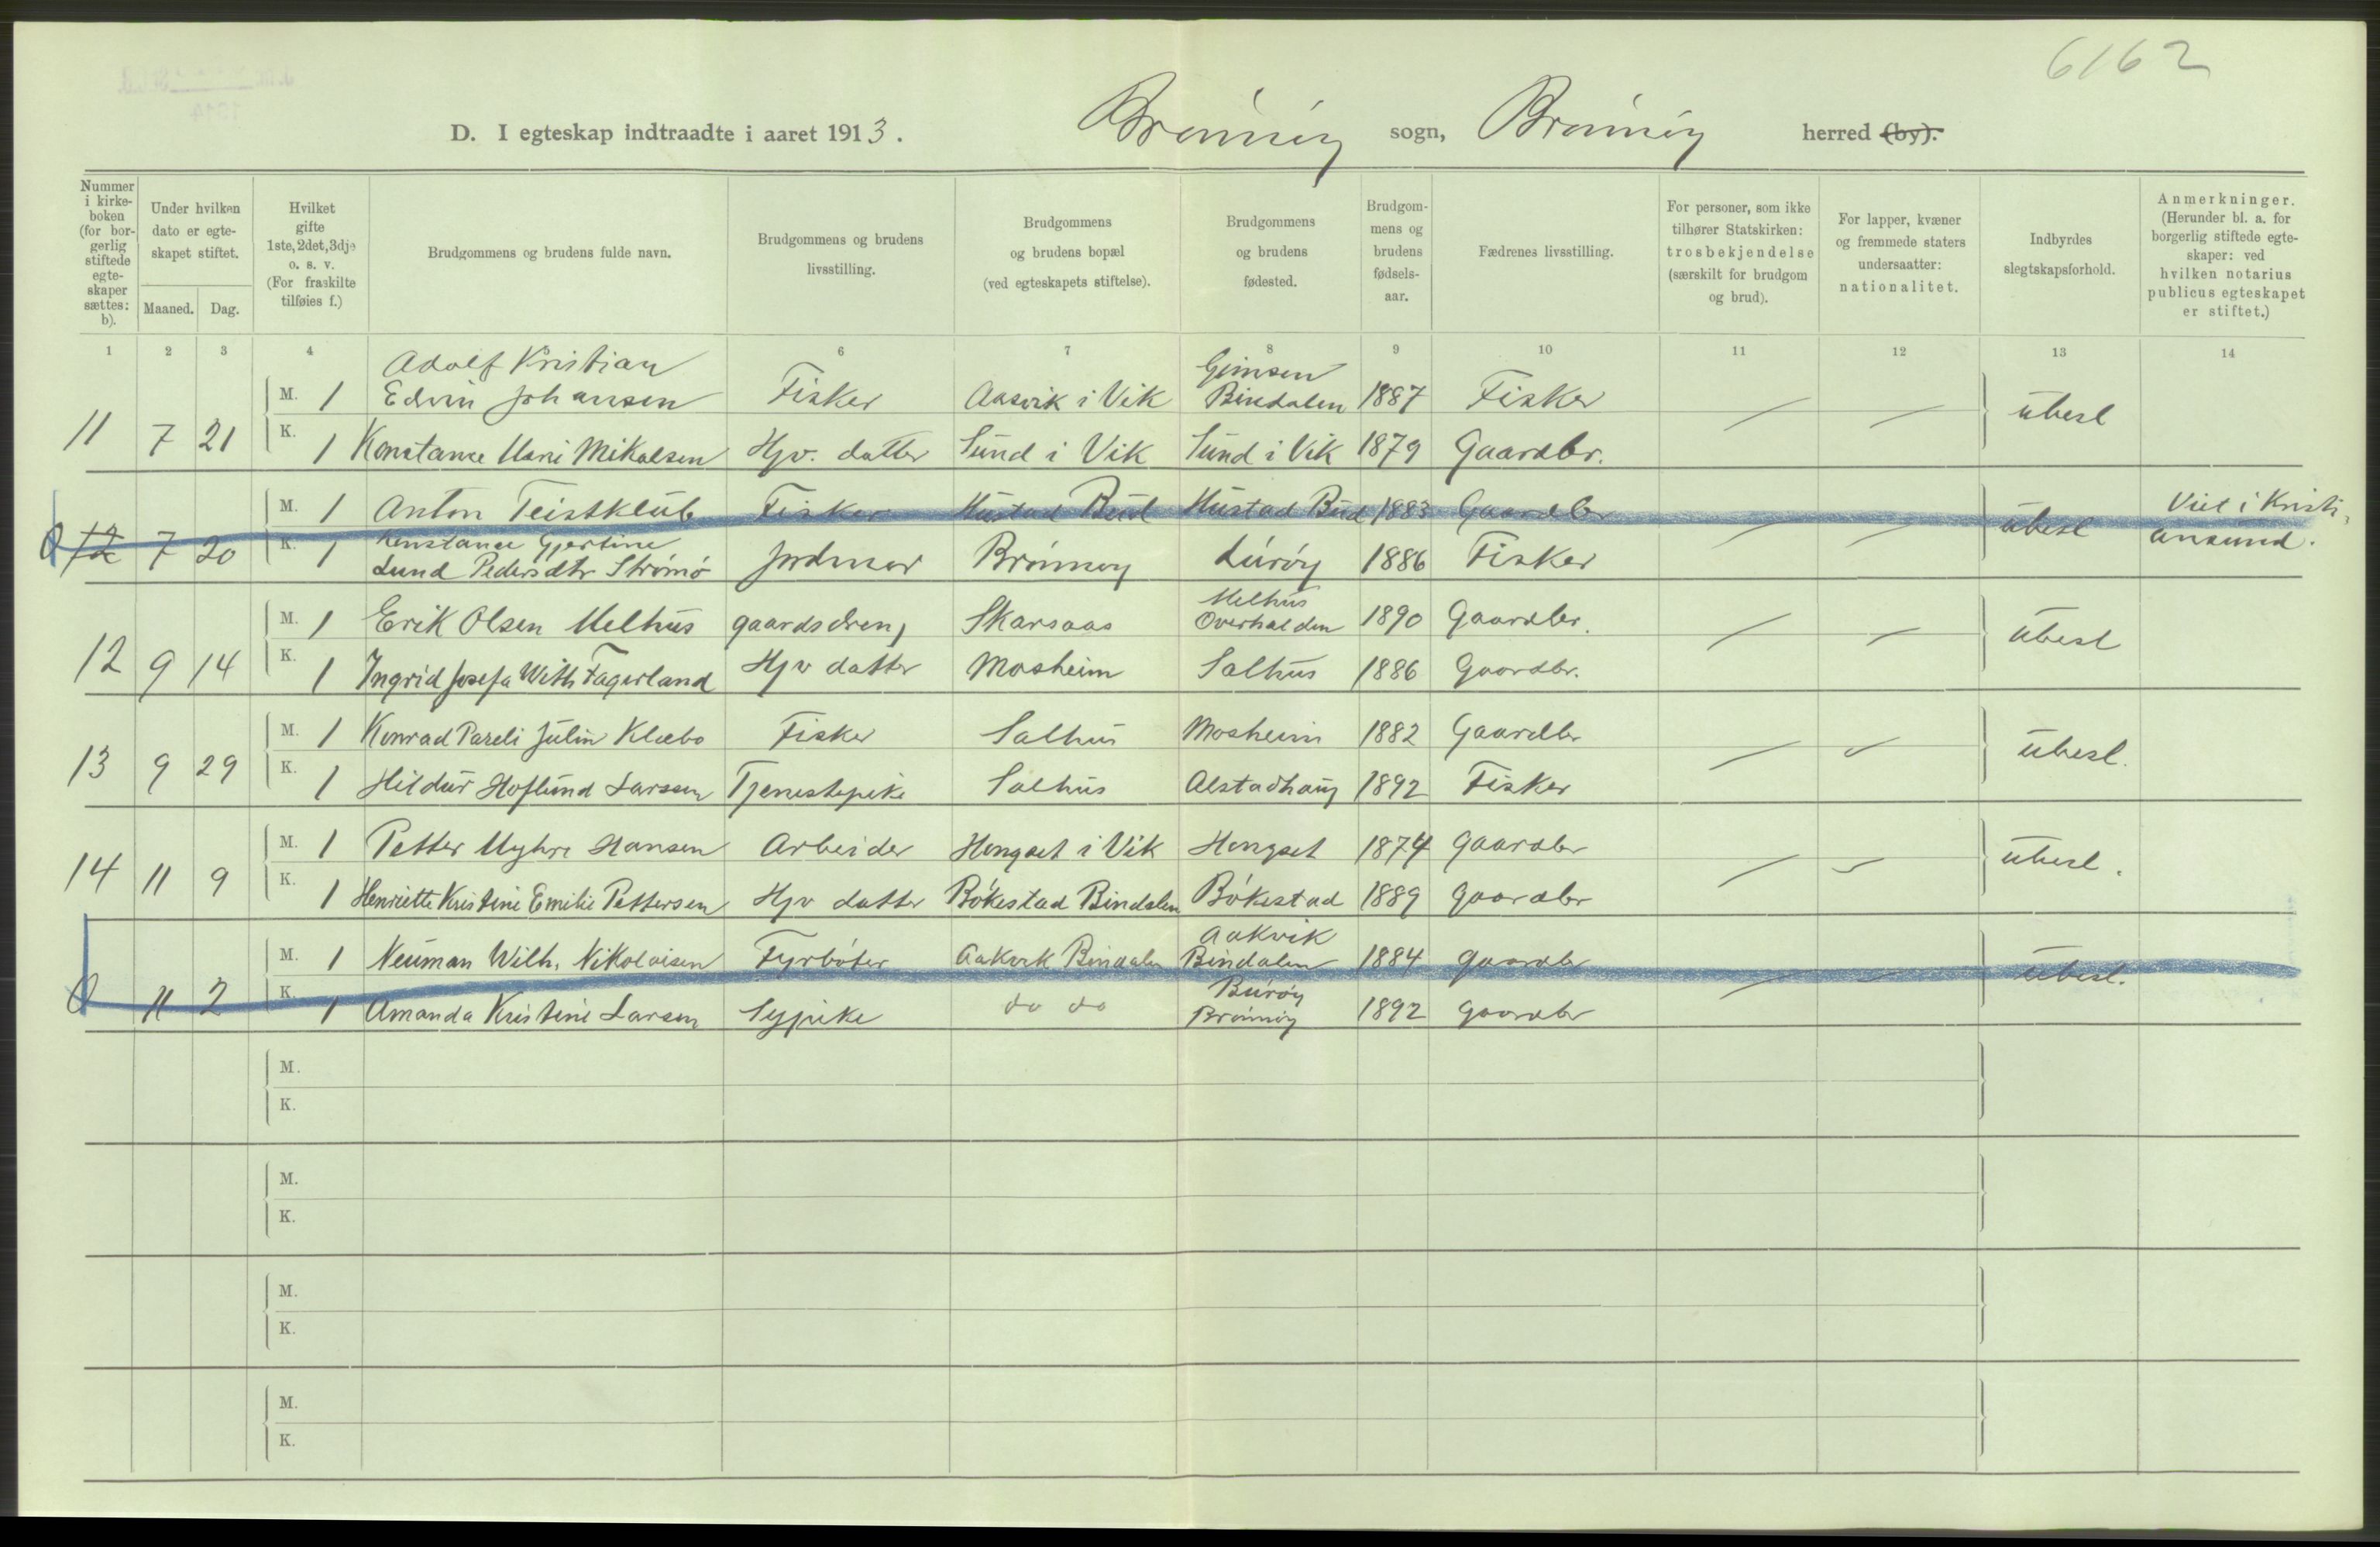 6162
D. I egteskap indtraadte i aaret 1913. Brønnøy sogn, Brønnøy herred (by).
Nummer i kirke- boken (for bor- gerlig stiftede egte- skaper sættes: b).
Under hvilken dato er egte- skapet stiftet.
Maaned. Dag.
Hvilket gifte 1ste, 2det, 3dje o. s. v. (For fraskilte tilføies f.)
Brudgommens og brudens fulde navn.
Brudgommens og brudens livsstilling.
Brudgommens og brudens bopæl (ved egteskapets stiftelse).
Brudgommens og brudens fødested.
Brudgom- mens og brudens fødsels- aar.
Fædrenes livsstilling.
For personer, som ikke tilhører Statskirken: trosbekjendelse (særskilt for brudgom og brud).
For lapper, kvæner og fremmede staters undersaatter: nationalitet.
Indbyrdes slegtskapsforhold.
Anmerkninger. (Herunder bl. a. for borgerlig stiftede egte- skaper: ved hvilken notarius publicus egteskapet er stiftet.)
1 2 3 4 5 6 7 8 9 10 11 12 13 14
Adolf Kristian Gimsen
M. 1 Edvin Johansen Fisker Aasvik i Vik Bindalen 1887 Fisker
11 7 21 ubesl
K. 1 Konstance Marie Mikalsen Hjv. datter Sund i Vik Sund i Vik 1879 Gaardbr.
M. 1 Anton Teistklub Fisker Hustad Bud Hustad Bud 1883 Gaardbr
Viet i Kristi-
12 7 20 ubesl ansund.
K. 1 Konstance Gjertine
Lund Pedersdtr Strømø Jordmor Brønnøy Lurøy 1886 Fisker
Melhus
M. 1 Erik Olsen Melhus gaardsdreng Skarsaas Overhalden 1890 Gaardbr.
12 9 14 ubesl
K. 1 Ingrid Josefa With Fagerland Hjv datter Mosheim Salhus 1886 Gaardbr.
M. 1 Konrad Pareli Julin Klæbo Fisker Salhus Mosheim 1882 Gaardbr
13 9 29 ubesl.
K. 1 Hildur Hoflund Larssen Tjenestepike Salhus Alstadhaug 1892 Fisker
M. 1 Petter Myhre Hansen Arbeider Hongset i Vik Hongset 1874 Gaardbr
14 11 9 ubesl.
K. 1 Henriette Kristine Emilie Pettersen Hjv datter Bøkestad Bindalen Bøkestad 1889 Gaardbr
Aakvik
M. 1 Neuman Wilh. Nikolaisen Fyrbøter Aakvik Bindalen Bindalen 1884 gaardbr
11 2 ubesl.
Burøy
K. 1 Amanda Kristine Larsen Sypike do do Brønnøy 1892 Gaardbr
M.
K.
M.
K.
M.
K.
M.
K.